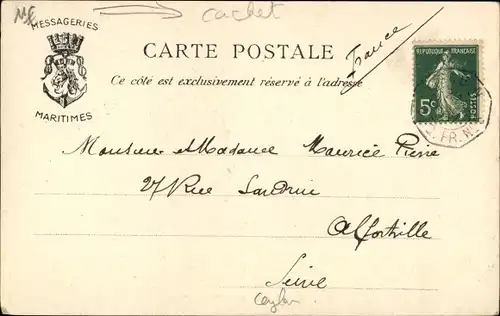 cachet
MESSAGERIES
MARITIMES
CARTE POSTALE
Ce côté est exclusivement réservé à l'adresse
France
REPUBLIQUE FRANÇAISE
5c
POSTES
FR. N
Monsieur et Madame Maurice Pierre
27 Rue
Alfortville
Seine
Ceylan